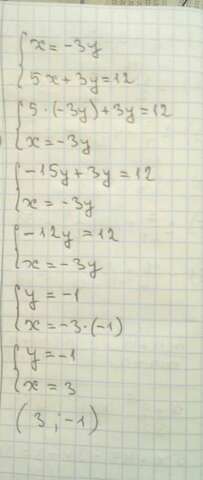 x = -3y
5x + 3y = 12
5 · (-3y) + 3y = 12
x = -3y
-15y + 3y = 12
x = -3y
-12y = 12
x = -3y
y = -1
x = -3 · (-1)
y = -1
x = 3
(3 ; -1)